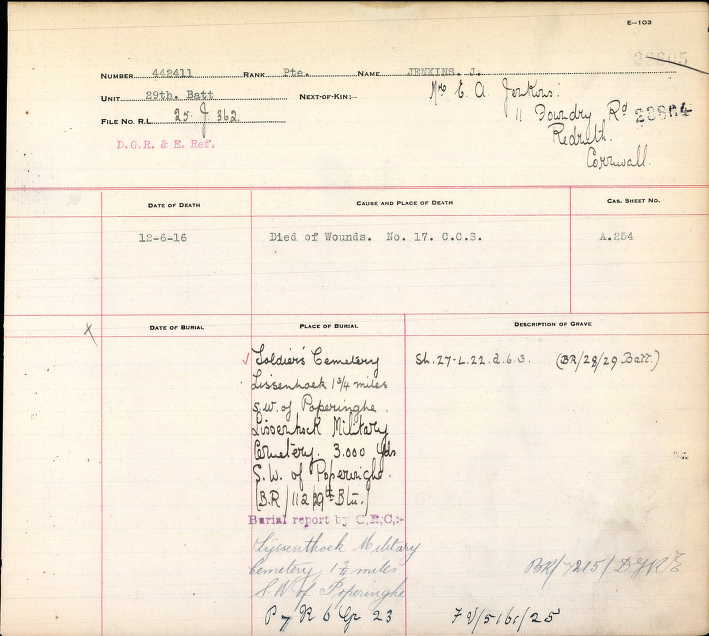 E—103
NUMBER 442411 RANK Pte. NAME JENKINS. J.
UNIT 29th. Batt NEXT-OF-KIN:— Mrs E. A. Jenkins:
11 Foundry Rd
FILE No. R.L. 25. J 362.
Redruth.
Cornwall.
D.G.R. & E. Ref.
DATE OF DEATH CAUSE AND PLACE OF DEATH CAS. SHEET No.
12-6-16 Died of Wounds. No. 17. C.C.S. A.254
DATE OF BURIAL PLACE OF BURIAL DESCRIPTION OF GRAVE
Soldier's Cemetery Sh. 27-L.22.d.6.3. (BR/28/29 Batt.)
Lissenhoek 1 3/4 miles
S.W. of Poperinghe.
Lissenhock Military
Cemetery. 3.000 yds
S.W. of Poperinghe.
(B.R/112/29th Btn.)
Burial report by C.E.C,:-
Lijssenthoek Military
Cemetery 1 1/2 miles
S.W of Poperinghe
BR/7215/DGRE
P 7 R 6 Gr 23 FV/5161/25